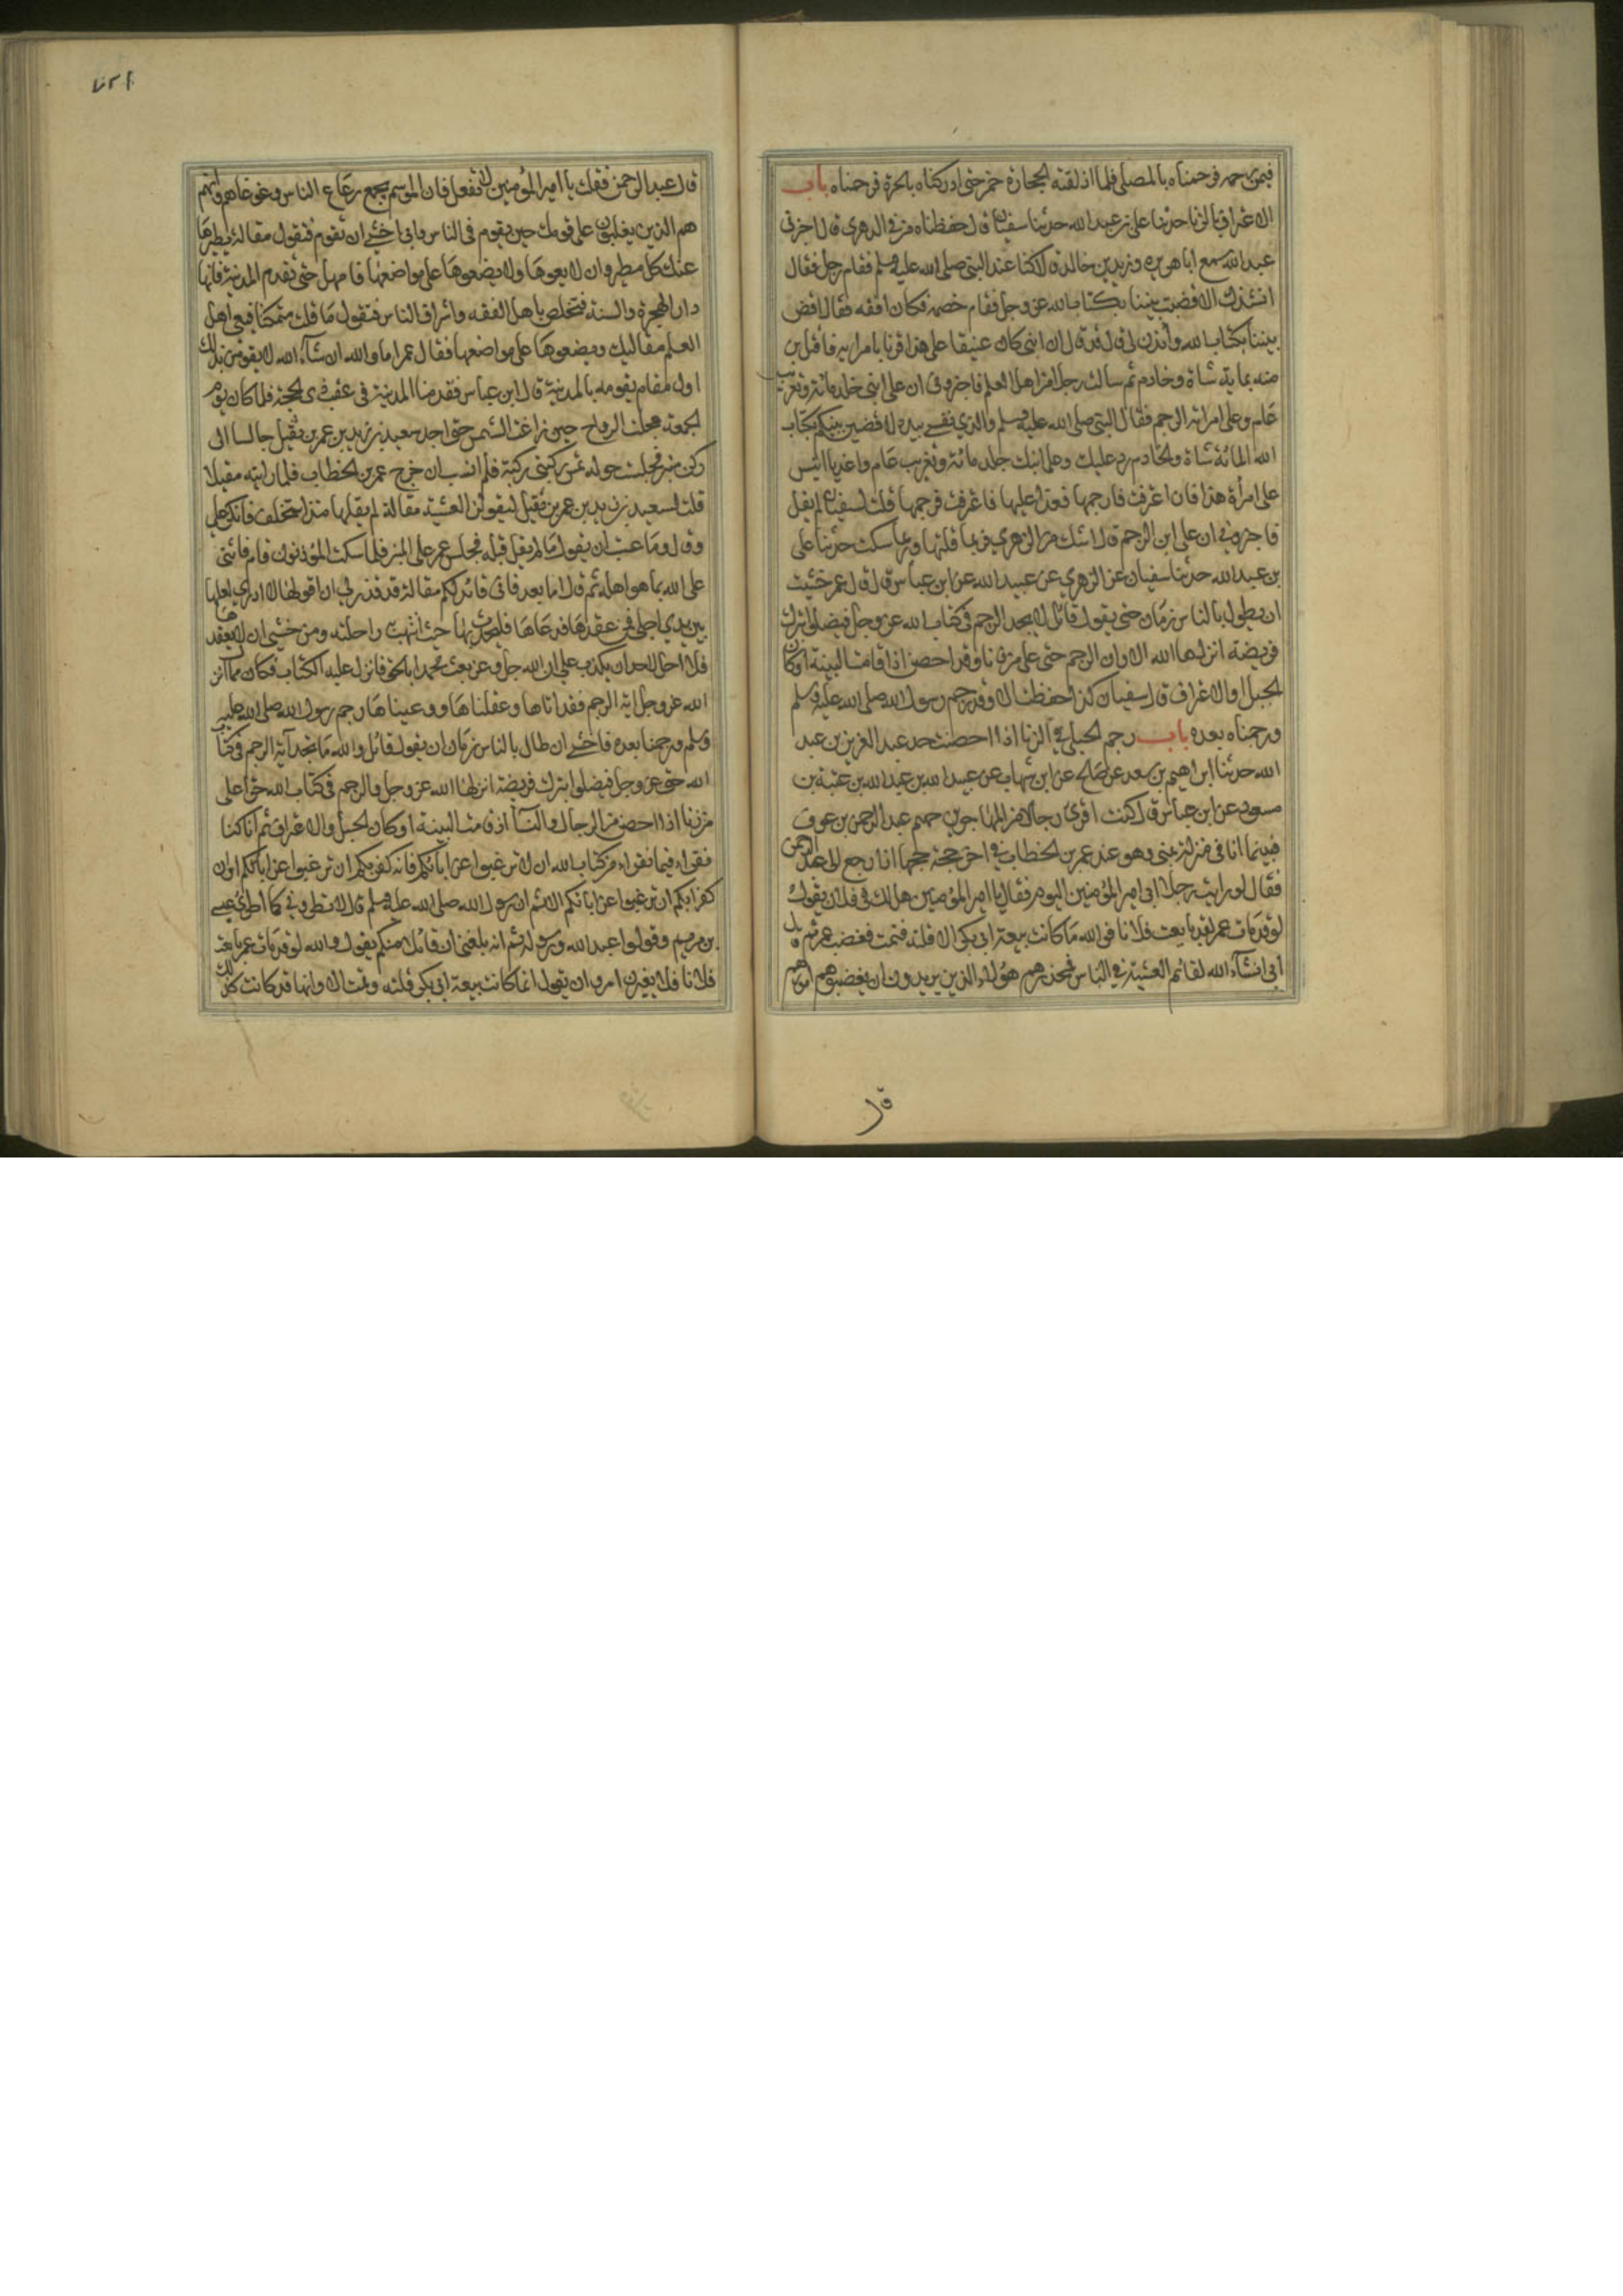 فيمن رجمه فرجمناه بالمصلى فلما اذلقته الحجارة جمز حتى ادركناه بالحرة فرجمناه باب
الاعتراف بالزنا حدثنا على بن عبد الله حدثنا سفيان قال حفظناه من فى الزهرى قال اخبرنى
عبيد الله سمع ابا هريرة وزيد بن خالد قالا كنا عند النبى صلى الله عليه وسلم فقام رجل فقال
انشدك الا قضيت بيننا بكتاب الله عز وجل فقام خصمه وكان افقه فقال اقض
بيننا بكتاب الله وأذن لى قال قل قال ان ابنى كان عسيفا على هذا فزنا بامراته فافتديت
منه بماية شاة وخادم ثم سالت رجالا من اهل العلم فاخبرونى ان على ابنى جلد مائة وتغريب
عام وعلى امراته الرجم فقال النبى صلى الله عليه وسلم والذي نفسي بيده لاقضين بينكم بكتاب
الله المائة شاة والخادم رد عليك وعلى ابنك جلد مائة وتغريب عام واغد يا انيس
على امرأة هذا فان اعترفت فارجمها فغدا عليها فاعترفت فرجمها قلت لسفيان لم يقل
فاخبروني ان على ابنى الرجم قال اشك من الزهري فربما قلتها وربما سكت حدثنا على
بن عبد الله حدثنا سفيان عن الزهري عن عبيد الله عن ابن عباس قال قال عمر خشيت
ان يطول بالناس زمان حتى يقول قائل لا نجد الرجم فى كتاب الله عز وجل فيضلوا بترك
فريضة انزلها الله الا وان الرجم حق على من زنا وقد احصن اذا قامت البينة اوكان
الحبل او الاعتراف قال سفيان كذا حفظت الا وقد رجم رسول الله صلى الله عليه وسلم
ورجمناه بعده باب رجم الحبلى في الزنا اذا احصنت حدثنا عبد العزيز بن عبد
الله حدثنا ابراهيم بن سعد عن صالح عن ابن شهاب عن عبيد الله بن عبد الله بن عتبة بن
مسعود عن ابن عباس قال كنت اقرئ رجالا من المهاجرين منهم عبد الرحمن بن عوف
فبينما انا فى منزله بمنى وهو عند عمر بن الخطاب في اخر حجة حجها اذ رجع الى عبد الرحمن
فقال لو رايت رجلا اتى امير المؤمنين اليوم فقال يا امير المؤمنين هل لك فى فلان يقول
لو قد مات عمر لقد بايعت فلانا فوالله ما كانت بيعة ابى بكر الا فلتة فتمت فغضب عمر ثم قال
انى ان شاء الله لقائم العشية في الناس فمحذرهم هؤلاء الذين يريدون ان يغصبوهم امورهم
قا
قال عبد الرحمن فقلت يا امير المؤمنين لا تفعل فان الموسم يجمع رعاع الناس وغوغاءهم فانهم
هم الذين يغلبون على قربك حين تقوم فى الناس وانى اخشى ان تقوم فتقول مقالة يطيرها
عنك كل مطير وان لا يعوها ولا يضعوها على مواضعها فامهل حتى تقدم المدينة فانها
دار الهجرة والسنة فتخلص باهل الفقه واشراف الناس فتقول ما قلت متمكنا فيعى اهل
العلم مقالتك ويضعوها على مواضعها فقال عمر اما والله ان شاء الله لاقومن بذلك
اول مقام اقومه بالمدينة قال ابن عباس فقدمنا المدينة فى عقب ذى الحجة فلما كان يوم
الجمعة عجلت الرواح حين زاغت الشمس حتى اجد سعيد بن زيد بن عمرو بن نفيل جالسا الى
ركن المنبر فجلست حوله تمس ركبتى ركبته فلم انشب ان خرج عمر بن الخطاب فلما رايته مقبلا
قلت لسعيد بن زيد بن عمرو بن نفيل ليقولن العشية مقالة لم يقلها منذ استخلف فانكر على
وقال وما عسيت ان يقول ما لم يقل قبله فجلس عمر على المنبر فلما سكت المؤذنون قام فاثنى
على الله بما هو اهله ثم قال اما بعد فانى قائل لكم مقالة قد قدر لي ان اقولها لا ادري لعلها
بين يدي اجلى فمن عقلها ووعاها فليحدث بها حيث انتهت راحلته ومن خشى ان لا يعقلها
فلا احل لاحد ان يكذب علي ان الله جل وعز بعث محمدا بالحق وانزل عليه الكتاب فكان مما انزل
الله عز وجل اية الرجم فقراناها وعقلناها ووعيناها رجم رسول الله صلى الله عليه
وسلم ورجمنا بعده فاخشى ان طال بالناس زمان ان يقول قائل والله ما نجد آية الرجم فى كتاب
الله عز وجل فيضلوا بترك فريضة انزلها الله عز وجل والرجم فى كتاب الله حق على
من زنا اذا احصن من الرجال والنساء اذا قامت البينة اوكان الحبل او الاعتراف ثم انا كنا
نقراء فيما نقراء من كتاب الله ان لا ترغبوا عن آبائكم فانه كفر بكم ان ترغبوا عن ابائكم او ان
كفرا بكم ان ترغبوا عن ابائكم الا ثم ان رسول الله صلى الله عليه وسلم قال لا تطروني كما اطرئ عيسى
بن مريم وقولوا عبد الله ورسوله ثم انه بلغنى ان قائلا منكم يقول والله لو قد مات عمر بايعت
فلانا فلا يغترن امرؤ ان يقول انما كانت بيعة ابى بكر فلتة وتمت الا وانها قد كانت كذلك